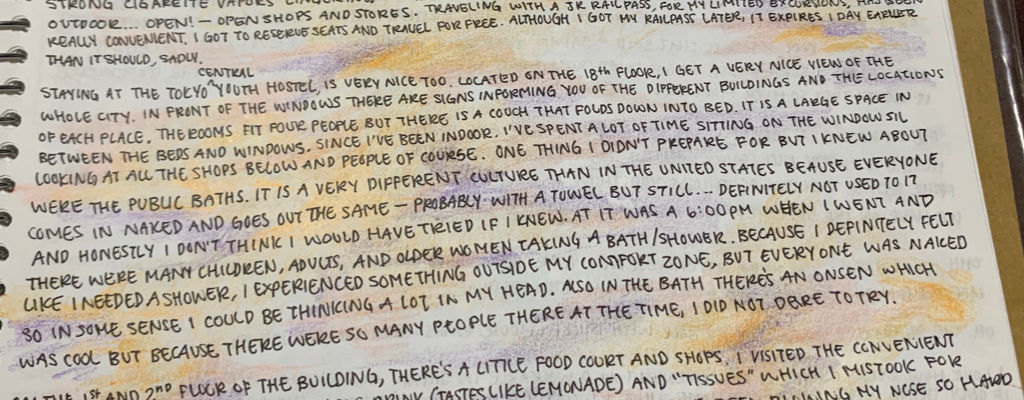 STRONG CIGARETTE VAPORS
OUTDOOR... OPEN! — OPEN SHOPS AND STORES. TRAVELING WITH A JR RAILPASS, FOR MY LIMITED EXCURSIONS, HAS BEEN
REALLY CONVENIENT. I GOT TO RESERVE SEATS AND TRAVEL FOR FREE. ALTHOUGH I GOT MY RAILPASS LATER, IT EXPIRES 1 DAY EARLIER
THAN IT SHOULD, SADLY.
CENTRAL
STAYING AT THE TOKYO ^ YOUTH HOSTEL, IS VERY NICE TOO. LOCATED ON THE 18th FLOOR, I GET A VERY NICE VIEW OF THE
WHOLE CITY. IN FRONT OF THE WINDOWS THERE ARE SIGNS INFORMING YOU OF THE DIFFERENT BUILDINGS AND THE LOCATIONS
OF EACH PLACE. THE ROOMS FIT FOUR PEOPLE BUT THERE IS A COUCH THAT FOLDS DOWN INTO BED. IT IS A LARGE SPACE IN
BETWEEN THE BEDS AND WINDOWS. SINCE I'VE BEEN INDOOR. I'VE SPENT A LOT OF TIME SITTING ON THE WINDOW SIL
LOOKING AT ALL THE SHOPS BELOW AND PEOPLE OF COURSE. ONE THING I DIDN'T PREPARE FOR BUT I KNEW ABOUT
WERE THE PUBLIC BATHS. IT IS A VERY DIFFERENT CULTURE THAN IN THE UNITED STATES BEAUSE EVERYONE
COMES IN NAKED AND GOES OUT THE SAME — PROBABLY WITH A TOWEL BUT STILL... DEFINITELY NOT USED TO IT
AND HONESTLY I DON'T THINK I WOULD HAVE TRIED IF I KNEW. AT IT WAS A 6:00PM WHEN I WENT AND
THERE WERE MANY CHILDREN, ADULTS, AND OLDER WOMEN TAKING A BATH/SHOWER. BECAUSE I DEFINITELY FELT
LIKE I NEEDED A SHOWER, I EXPERIENCED SOMETHING OUTSIDE MY COMFORT ZONE, BUT EVERYONE WAS NAKED
SO IN SOME SENSE I COULD BE THINKING A LOT IN MY HEAD. ALSO IN THE BATH THERE'S AN ONSEN WHICH
WAS COOL BUT BECAUSE THERE WERE SO MANY PEOPLE THERE AT THE TIME, I DID NOT DARE TO TRY.
THE 1ST AND 2ND FLOOR OF THE BUILDING, THERE'S A LITTLE FOOD COURT AND SHOPS. I VISITED THE CONVENIENT
DRINK (TASTES LIKE LEMONADE) AND "TISSUES" WHICH I MISTOOK FOR
MY NOSE SO HARD